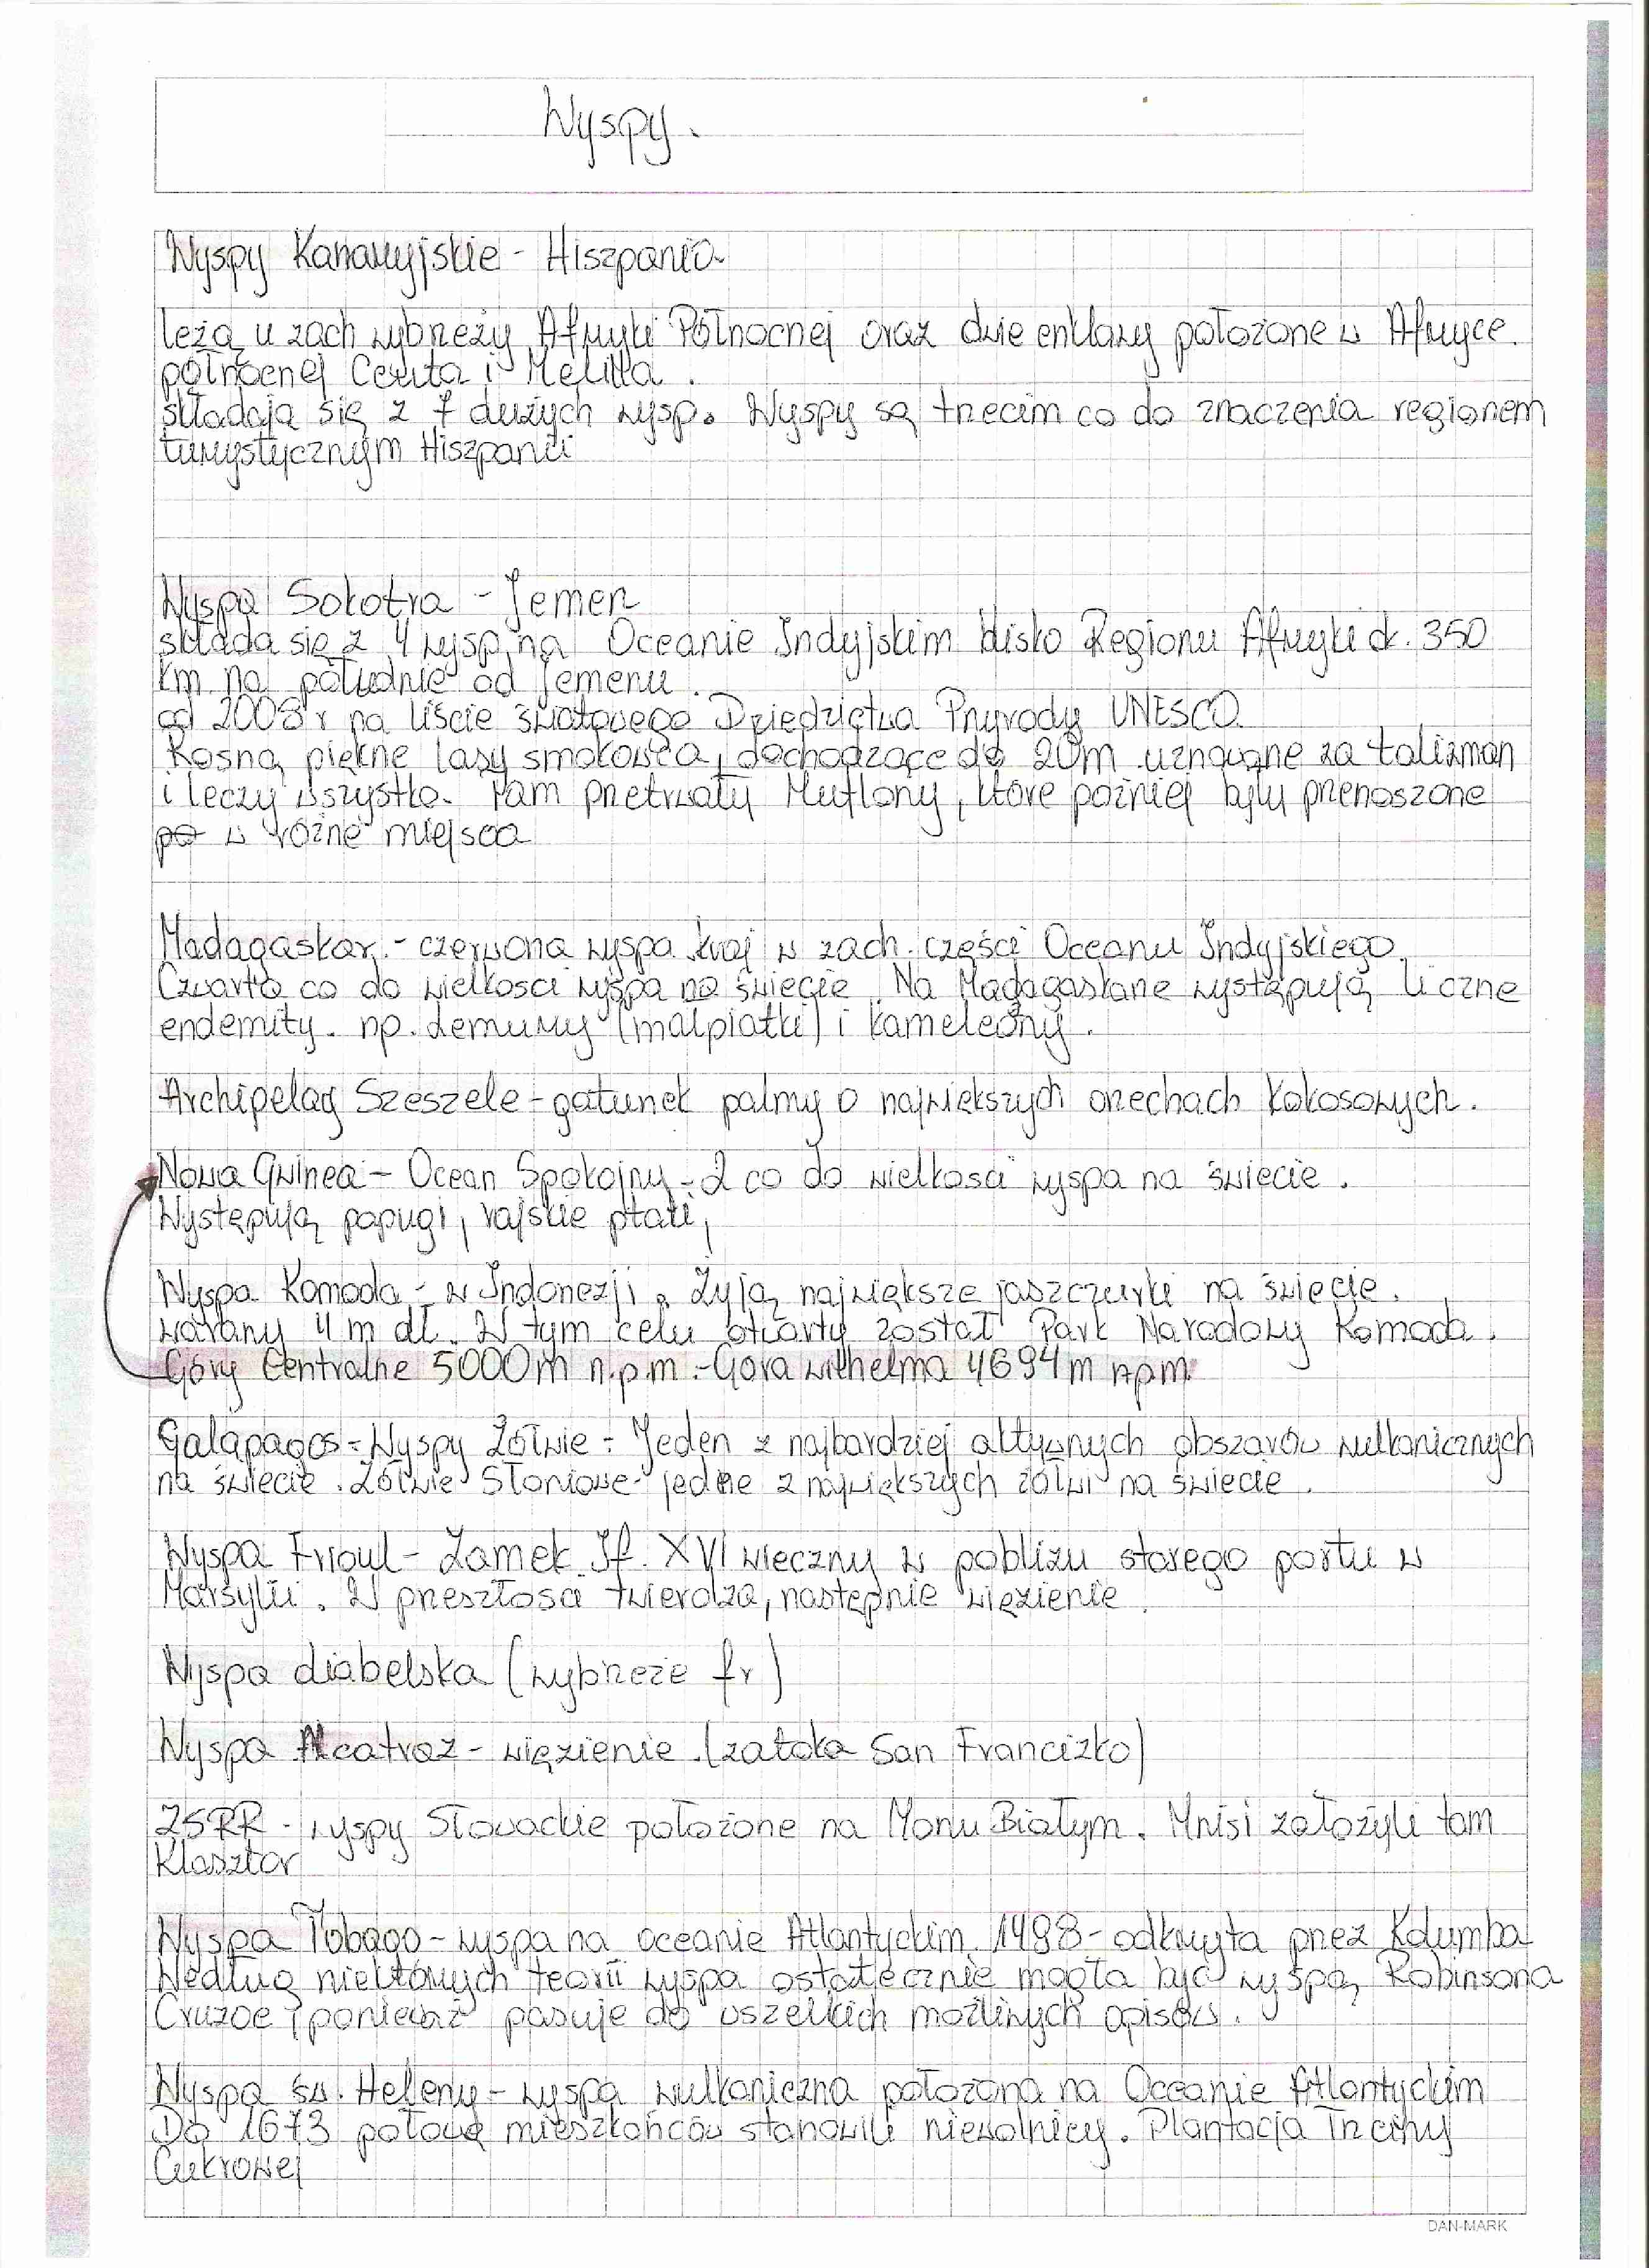 Wyspy.
Wyspy Kanaryjskie - Hiszpania.
leżą u zach wybrzeży Afryki Północnej oraz dwie enklawy położone w Afryce
północnej Ceuta i Melilla.
składają się z 7 dużych wysp. Wyspy są trzecim co do znaczenia regionem
turystycznym Hiszpanii
Wyspa Sokotra - Jemen
składa się z 4 wysp na Oceanie Indyjskim blisko Regionu Afryki ok. 350
km na południe od Jemenu.
od 2008 r na liście Światowego Dziedzictwa Przyrody UNESCO.
Rosną piękne lasy smokowca, dochodzące do 20m uznawane za talizman
i leczy wszystko. Tam przetrwały Muflony, które poźniej były przenoszone
po w rózne miejsca
Madagaskar. - czerwona wyspa kraj w zach. części Oceanu Indyjskiego.
Czwarta co do wielkosci wyspa na świecie. Na Madagaskarze występują liczne
endemity. np. Lemury (małpiatki) i kameleony.
Archipelag Szeszele - gatunek palmy o największych orzechach Kokosowych.
Nowa Gwinea - Ocean Spokojny - 2 co do wielkosci wyspa na świecie.
Występują papugi, rajskie ptaki,
Wyspa Komoda - w Indonezji. Żyją największe jaszczurki na świecie.
warany 4 m dł. W tym celu otwarty został Park Narodowy Komoda.
Góry Centralne 5000m n.p.m. - Góra Wilhelma 4694m npm.
Galapagos - Wyspy Żółwie - Jeden z najbardziej aktywnych obszarów wulkanicznych
na świecie. Żółwie Słoniowe - jedne z największych żółwi na świecie.
Wyspa Frioul - Zamek If. XVI wieczny w pobliżu starego portu w
Marsylii. W przeszłosci twierdza, następnie więzienie.
Wyspa diabelska (wybrzeże fr)
Wyspa Alcatraz - więzienie. (zatoka San Francizko)
ZSRR - wyspy Słowackie położone na Morzu Białym. Mnisi założyli tam
Klasztor
Wyspa Tobago - wyspa na oceanie Atlantyckim. 1498 - odkryta przez Kolumba
Według niektórych teorii wyspa ostatecznie mogła być wyspą Robinsona
Cruzoe, ponieważ pasuje do wszelkich możliwych opisów.
Wyspa św. Heleny - wyspa wulkaniczna położona na Oceanie Atlantyckim
Do 1673 połowę mieszkańców stanowili niewolnicy. Plantacja Trzciny
Cukrowej
DAN-MARK